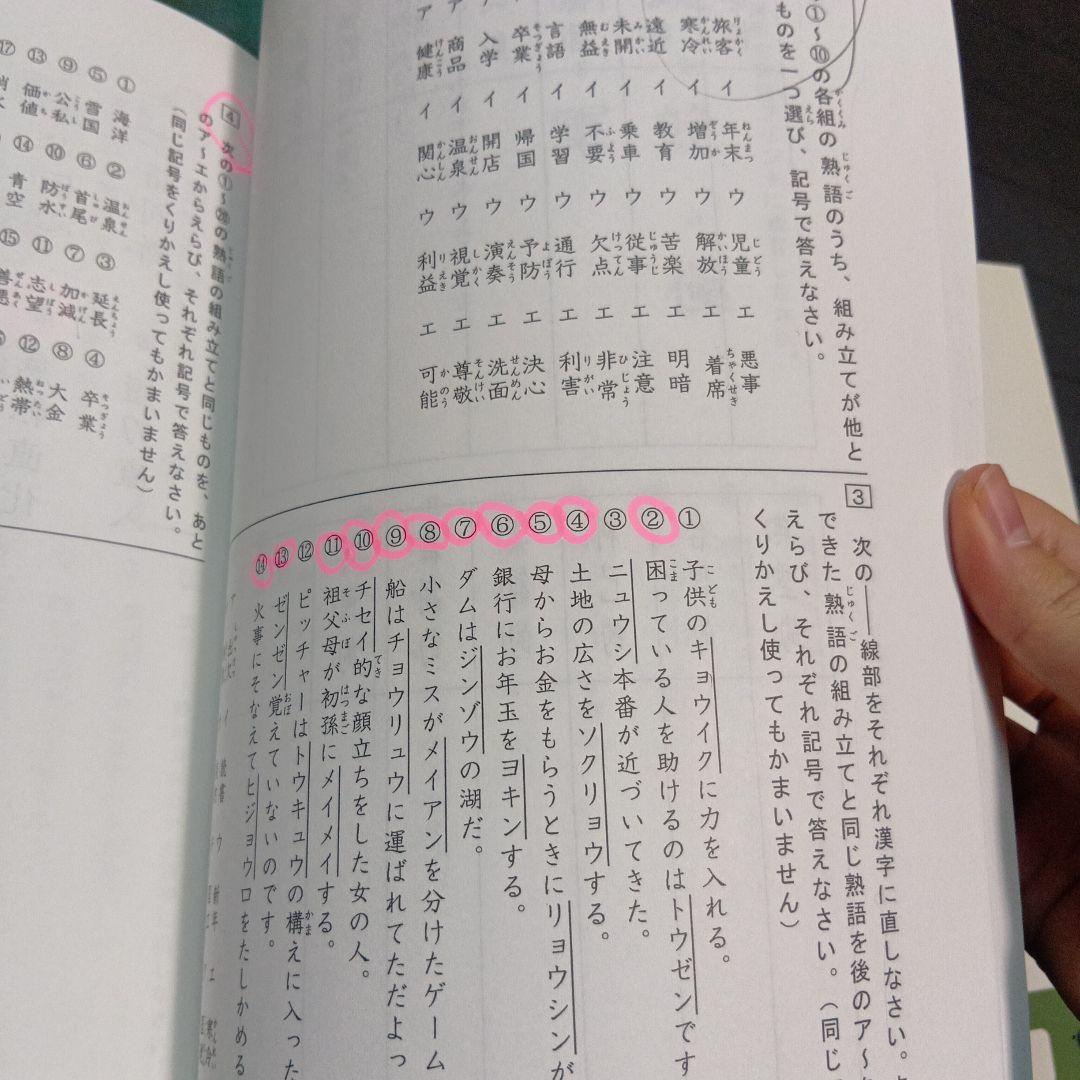 ①～⑩の各組の熟語のうち、組み立てが他と
ものを一つ選び、記号で答えなさい。
旅客 イ 年末 ウ 児童 エ 悪事
寒冷 イ 増加 ウ 解放 エ 着席
遠近 イ 教育 ウ 苦楽 エ 明暗
未開 イ 乗車 ウ 従事 エ 注意
無益 イ 不要 ウ 欠点 エ 非常
言語 イ 学習 ウ 通行 エ 利害
卒業 イ 帰国 ウ 予防 エ 決心
入学 イ 開店 ウ 演奏 エ 洗面
ア 商品 イ 温泉 ウ 視覚 エ 尊敬
ア 健康 イ 関心 ウ 利益 エ 可能
3 次の――線部をそれぞれ漢字に直しなさい。
できた熟語の組み立てと同じ熟語を後のア～
えらび、それぞれ記号で答えなさい。（同じ
くりかえし使ってもかまいません）
① 子供のキョウイクに力を入れる。
② 困っている人を助けるのはトウゼンです
③ ニュウシ本番が近づいてきた。
④ 土地の広さをソクリョウする。
⑤ 母からお金をもらうときにリョウシンが
⑥ 銀行にお年玉をヨキンする。
⑦ ダムはジンゾウの湖だ。
⑧ 小さなミスがメイアンを分けたゲーム
⑨ 船はチョウリュウに運ばれてただよっ
⑩ チセイ的な顔立ちをした女の人。
⑪ 祖父母が初孫にメイメイする。
⑫ ピッチャーはトウキュウの構えに入った
⑬ ゼンゼン覚えていないのです。
⑭ 火事にそなえてヒジョウロをたしかめる
4 次の①～⑳の熟語の組み立てと同じものを、あと
のア～エからえらび、それぞれ記号で答えなさい。
（同じ記号をくりかえし使ってもかまいません）
① 海洋 ② 温泉 ③ 延長 ④ 卒業
⑤ 雪国 ⑥ 首尾 ⑦ 加減 ⑧ 大金
⑨ 公私 ⑩ 防水 ⑪ 志望 ⑫ 熱帯
⑬ 価値 ⑭ 青空 ⑮ 善悪
⑰